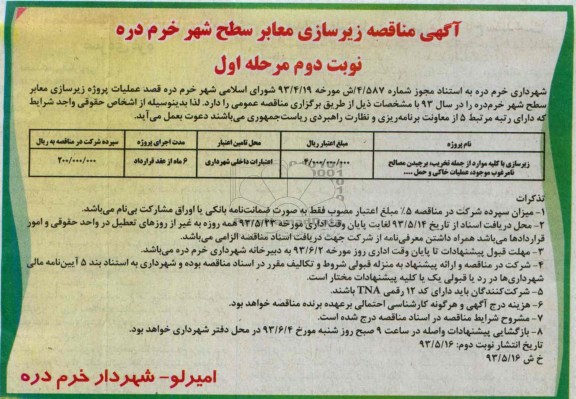 آگهی مناقصه زیرسازی معابر سطح شهر خرم دره
نوبت دوم مرحله اول
شهرداری خرم دره به استناد مجوز شماره ۴/۵۸۷/ش مورخه ۹۳/۴/۱۹ شورای اسلامی شهر خرم دره قصد عملیات پروژه زیرسازی معابر
سطح شهر خرم‌دره را در سال ۹۳ با مشخصات ذیل از طریق برگزاری مناقصه عمومی را دارد. لذا بدینوسیله از اشخاص حقوقی واجد شرایط
که دارای رتبه مرتبط ۵ از معاونت برنامه‌ریزی و نظارت راهبردی ریاست‌جمهوری می‌باشند دعوت بعمل می‌آید.
نام پروژه مبلغ اعتبار ریال محل تامین اعتبار مدت اجرای پروژه سپرده شرکت در مناقصه به ریال
زیرسازی با کلیه موارد از جمله تخریب، برچیدن مصالح ۴/۰۰۰/۰۰۰/۰۰۰ اعتبارات داخلی شهرداری ۶ ماه از عقد قرارداد ۲۰۰/۰۰۰/۰۰۰
نامرغوب موجود، عملیات خاکی و حمل ....
تذکرات
۱- میزان سپرده شرکت در مناقصه ۵٪ مبلغ اعتبار مصوب فقط به صورت ضمانت‌نامه بانکی یا اوراق مشارکت بی‌نام می‌باشد.
۲- محل دریافت اسناد از تاریخ ۹۳/۵/۱۴ لغایت پایان وقت اداری مورخه ۹۳/۵/۲۳ همه روزه به غیر از روزهای تعطیل در واحد حقوقی و امور
قراردادها می‌باشد همراه داشتن معرفی‌نامه از شرکت جهت دریافت اسناد مناقصه الزامی می‌باشد.
۳- مهلت قبول پیشنهادات تا پایان وقت اداری روز مورخه ۹۳/۶/۲ به دبیرخانه شهرداری خرم دره می‌باشد.
۴- شرکت در مناقصه و ارائه پیشنهاد به منزله قبولی شروط و تکالیف مقرر در اسناد مناقصه بوده و شهرداری به استناد بند ۵ آیین‌نامه مالی
شهرداری‌ها در رد یا قبولی یک یا کلیه پیشنهادات مختار است.
۵- شرکت‌کنندگان باید دارای کد ۱۲ رقمی TNA باشند.
۶- هزینه درج آگهی و هرگونه کارشناسی احتمالی برعهده برنده مناقصه خواهد بود.
۷- مشروح شرایط مناقصه در اسناد مناقصه درج شده است.
۸- بازگشایی پیشنهادات واصله در ساعت ۹ صبح روز شنبه مورخ ۹۳/۶/۴ در محل دفتر شهرداری خواهد بود.
تاریخ انتشار نوبت دوم: ۹۳/۵/۱۶
خ ش ۹۳/۵/۱۶
امیرلو- شهردار خرم دره